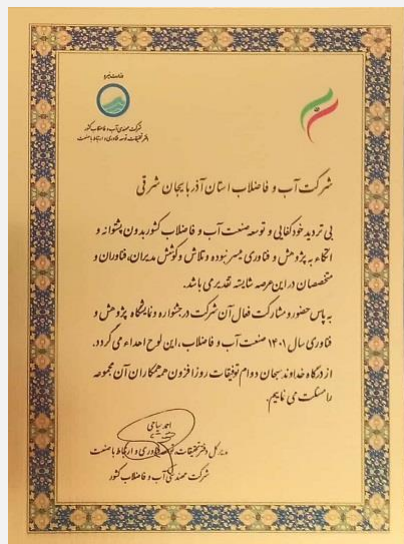 وزارت نیرو
شرکت مهندسی آب و فاضلاب کشور
دفتر تحقیقات، توسعه فناوری و ارتباط با صنعت
شرکت آب و فاضلاب استان آذربایجان شرقی
بی تردید خودکفایی و توسعه صنعت آب و فاضلاب کشور بدون پشتوانه و
اتکاء به پژوهش و فناوری میسر نبوده و تلاش و کوشش مدیران، فناوران و
متخصصان در این عرصه شایسته تقدیر می باشد.
به پاس حضور و مشارکت فعال آن شرکت در جشنواره و نمایشگاه پژوهش و
فناوری سال ۱۴۰۱ صنعت آب و فاضلاب، این لوح اهداء می گردد.
از درگاه خداوند سبحان دوام توفیقات روزافزون همه همکاران آن مجموعه
را مسئلت می نماییم.
احمد سیاحی
مدیرکل دفتر تحقیقات، توسعه فناوری و ارتباط با صنعت
شرکت مهندسی آب و فاضلاب کشور